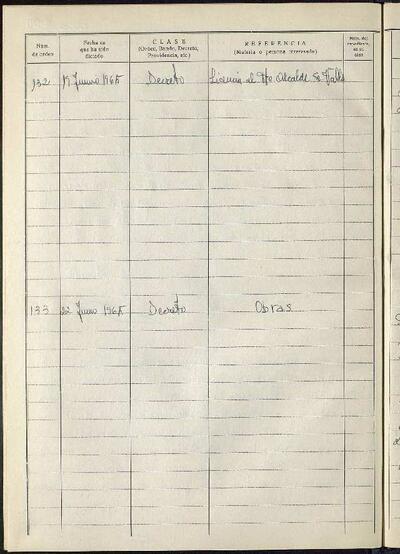 Núm. de orden
Fecha en que ha sido dictado
CLASE
(Orden, Bando, Decreto, Providencia, etc.)
REFERENCIA
(Materia o persona interesada)
132 17 Junio 1965 Decreto Licencia al Alcalde Sr. Valls
133 22 Junio 1965 Decreto Obras